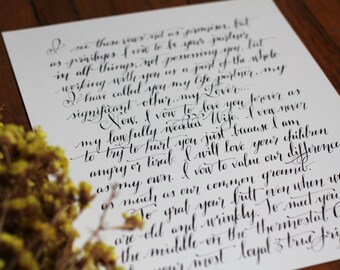 I see these vows not as promises but
as privileges. I vow to be your partner
in all things, not possessing you, but
working with you as a part of the whole.
I have called you my life partner, my
significant other, my Lover...
Now, I vow to love you forever as
my lawfully wedded Wife. I vow never
to try to hurt you just because I am
angry or tired. I will love your children
as my own. I vow to value our differences
as much as our common ground.
To grab your butt even when we
are old and wrinkly. To meet you
the middle on the thermostat.
your most loyal & true